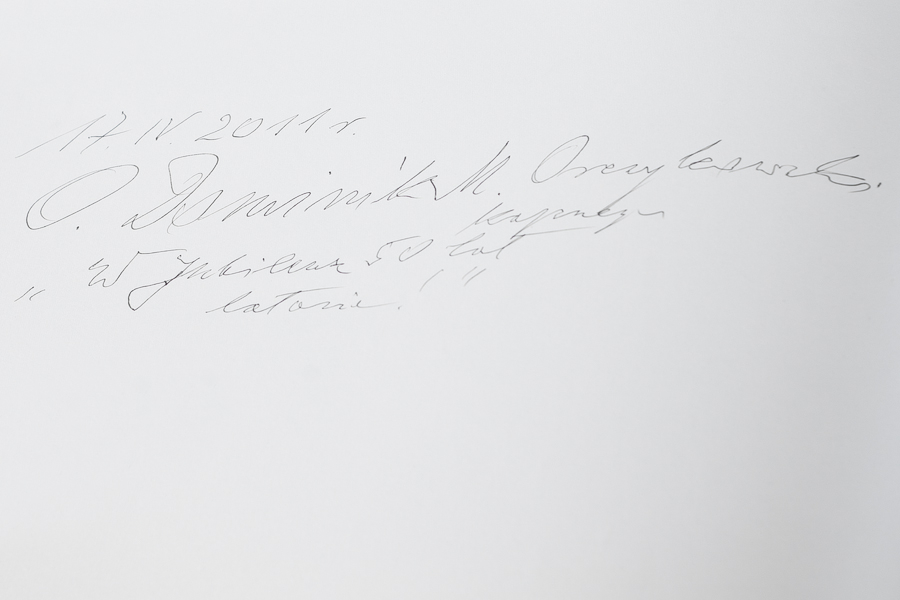 17. IV. 2011 r.
O. Dominik M. Orczykowski.
kapucyn
„W Jubileusz 50 lat
latania."